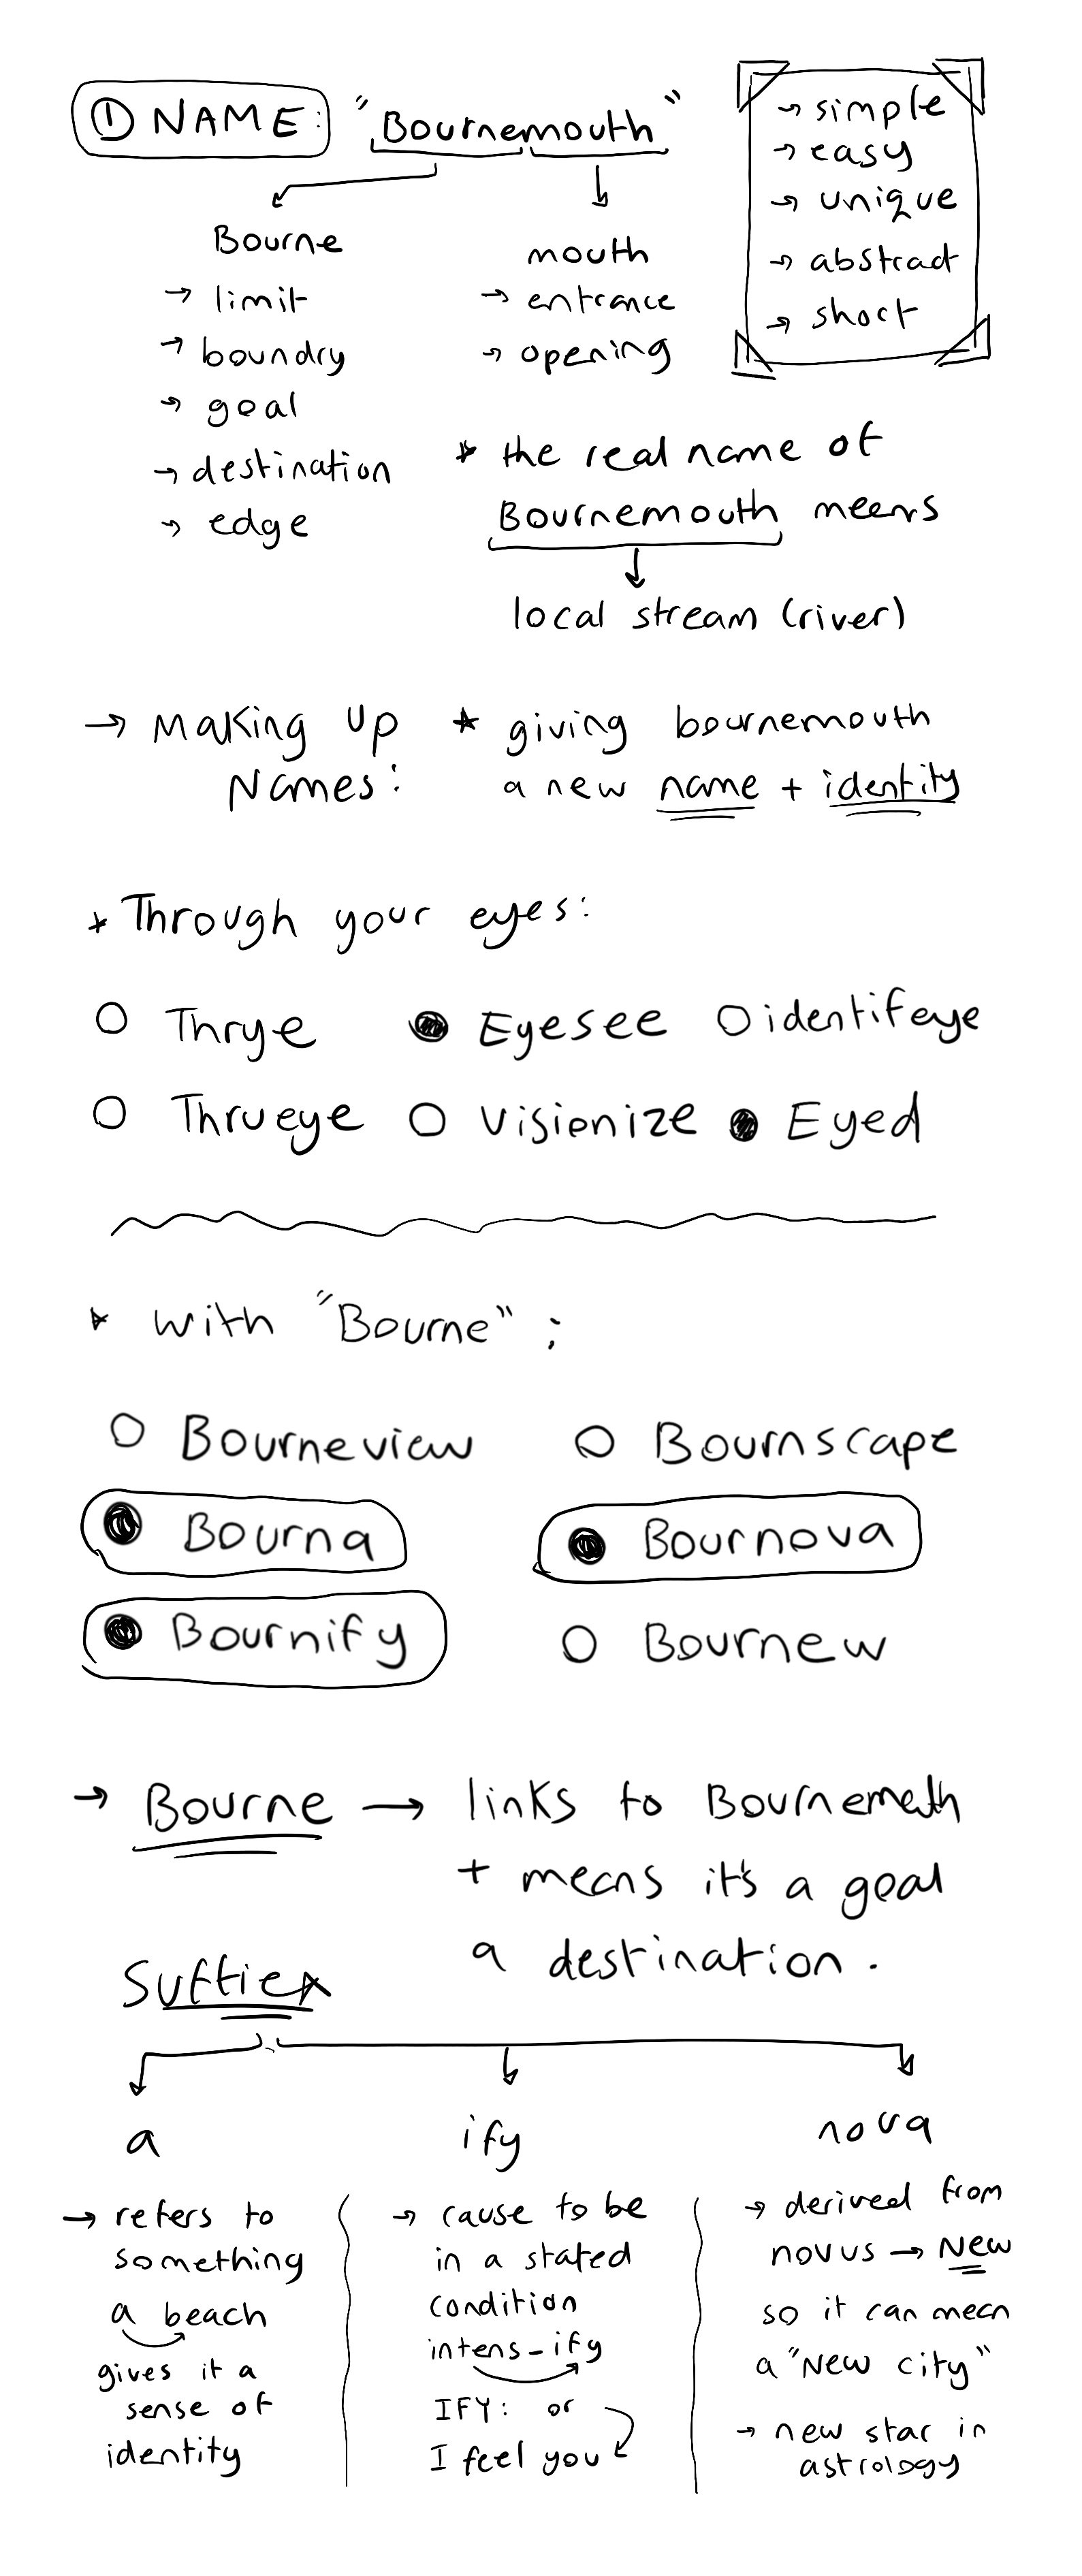 ① NAME: "Bournemouth"
→ simple
→ easy
→ unique
→ abstract
→ short
Bourne
→ limit
→ boundry
→ goal
→ destination
→ edge
mouth
→ entrance
→ opening
* the real name of
Bournemouth means
local stream (river)
→ Making up
Names:
* giving bournemouth
a new name + identity
* Through your eyes:
○ Thrye ● Eyesee ○ identifeye
○ Thrueye ○ Visionize ● Eyed
* with "Bourne" :
○ Bourneview ○ Bournscape
● Bourna ● Bournova
● Bournify ○ Bournew
→ Bourne → links to Bournemouth
+ means it's a goal
a destination.
Suffiex
a
→ refers to
something
a beach
gives it a
sense of
identity
ify
→ cause to be
in a stated
condition
intens-ify
IFY: or
I feel you
nova
→ derived from
novus → New
so it can mean
a "New city"
→ new star in
astrology